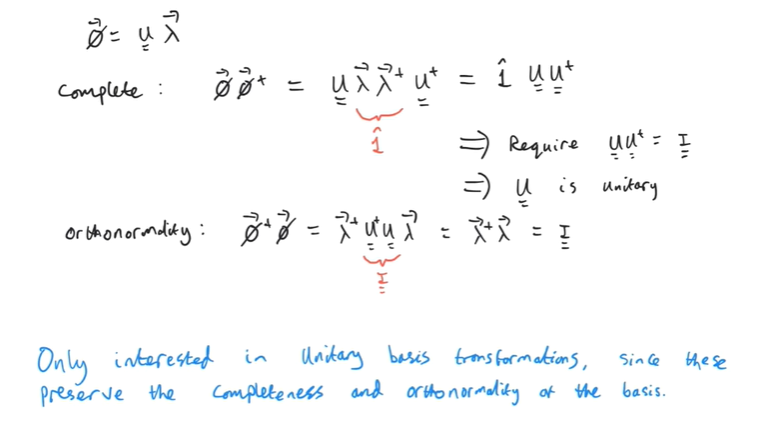 ϕ⃗ = u̳ λ⃗
Complete : ϕ⃗ ϕ⃗⁺ = u̳ λ⃗ λ⃗⁺ u̳⁺ = 1̂ u̳ u̳⁺
1̂
⇒ Require u̳ u̳⁺ = I̳
⇒ u̳ is unitary
orthonormality : ϕ⃗⁺ ϕ⃗ = λ⃗⁺ u̳⁺ u̳ λ⃗ = λ⃗⁺ λ⃗ = I̳
I̳
Only interested in unitary basis transformations, since these
preserve the completeness and orthonormality of the basis.